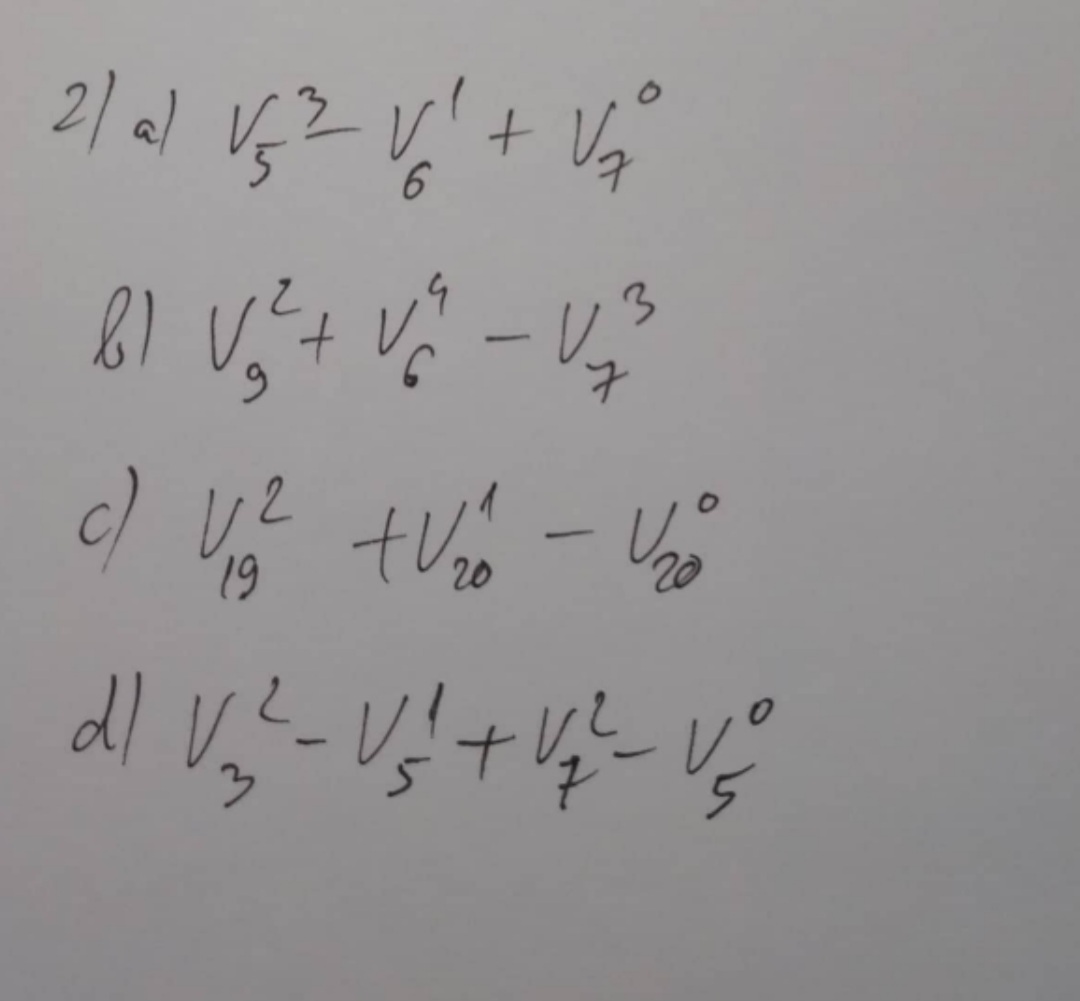 2) a) V₅³ - V₆¹ + V₇⁰
b) V₉² + V₆⁴ - V₇³
c) V₁₉² + V₂₀¹ - V₂₀⁰
d) V₃² - V₅¹ + V₇² - V₅⁰